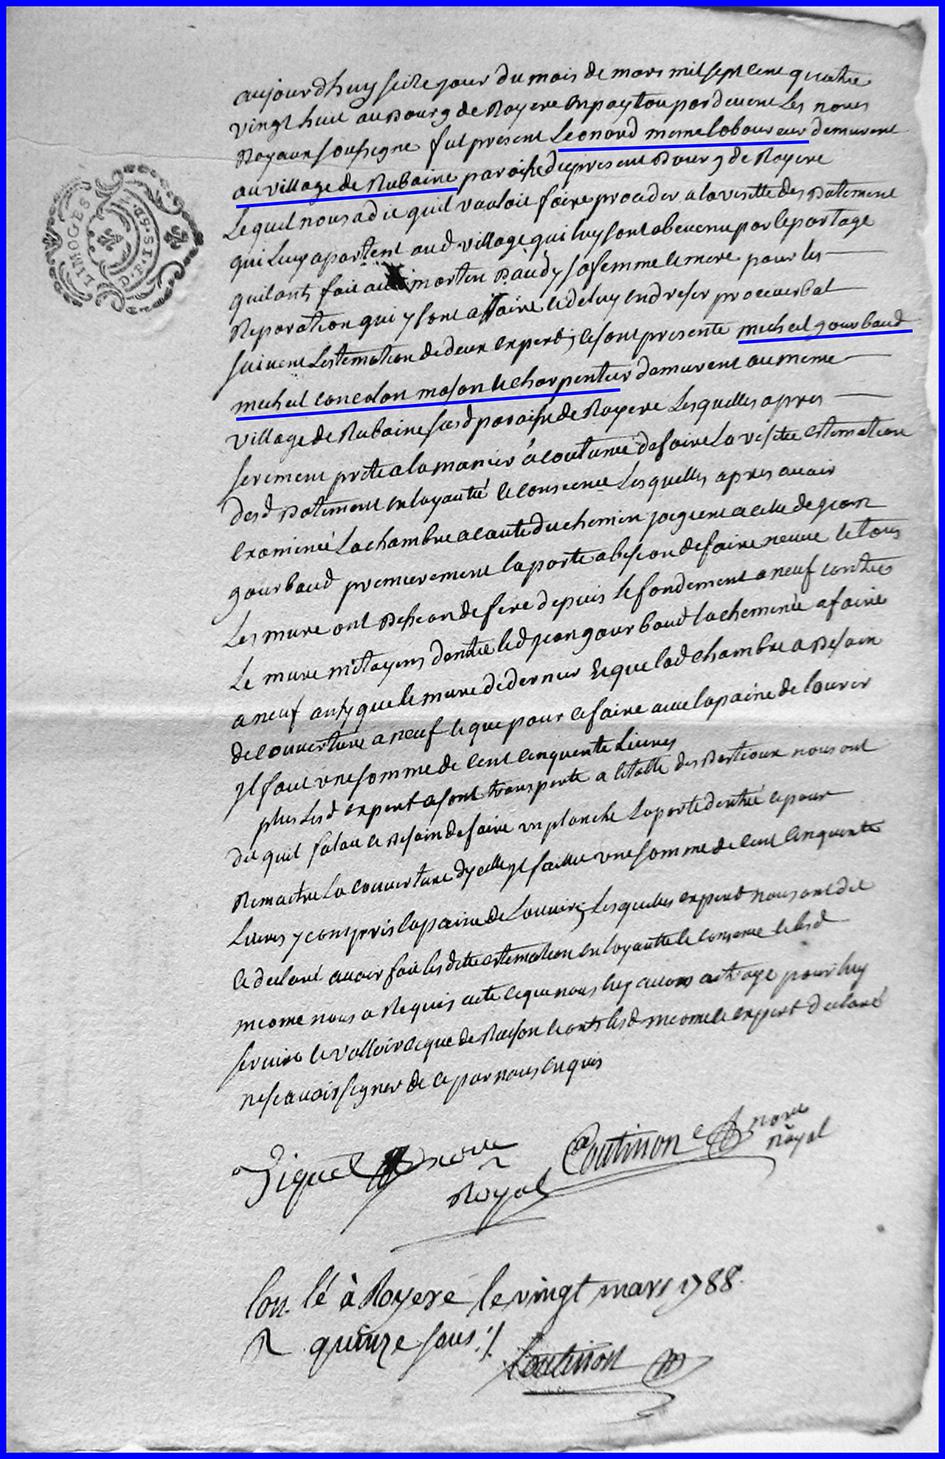 aujourd huy seize jour du mois de mars mil sept cent quatre
vingt huit au Bourg de Royere en paytou pardevent Les nores
Royaux soussigne fut present Leonard mome laboureur demurent
au village de Rubaine paroisse dupresent Bourg de Royere
Lequel nous a die quil vauloit faire proceder a la visitte des Batement
qui Luy apartent aud village qui luy sont abevenu par le partage
quil ont fait a martin Baudy sa femme le mere pour les
Reparation qui y sont affaire le deluy endreser procuerbal
suivent Lestemation de deux experds ce sont presente micheul gourbaud
micheul concalon mason le charpentier demurent au meme
village de Rubaine susd paroisse de Royere Lesquelles apres
serement prete a la manier a coutume de faire La visitte estemation
desd Batement en loyauté le consience Lesquelles apres avoir
Examineé La chambre a cauté du chemin jocquent a celle de jean
gourbaud premierement la porte a besoin de faire neuve le tous
Les mure ont Besoin de fere depuis le fondement a neuf contre
Le mure mitoyens dontre led jean gourbaud la cheminée a faire
a neuf ausy que le mure de dernier Et que lad chambre a Besoin
de couverture a neuf le que pour ce faire avec la paine de louvrier
Il faut une somme de cent cinquente Livres
plus Lesd expert ce sont transporte a letable des Bestiaux nous ont
dit quil falait le Besoin de faire un planche La porte dentreé le pour
Remaitre La couverture dycelle il faille une somme de cent cinquente
Livres y compris la paine de Louvrier Lesquelles expert nous ont dit
le declaré avoir fait lesdite estemation en loyauté le consience le led
mcome nous a Requis acte ce que nous luy avons actroye pour luy
servire le valloir ce que de Raison le onts lesd mcome le expert declaré
ne scavoir signer de ce par nous enquis
Jiquel nore Royal
Coutisson nore Royal
Con lé à Royere le vingt mars 1788.
R quinze sous ./.
Coutisson
LIMOGES